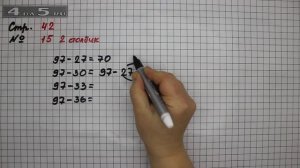 Стр. 42
№ 15 2 столбик
97-27= 70
97-30= 97-27
97-33=
97-36=